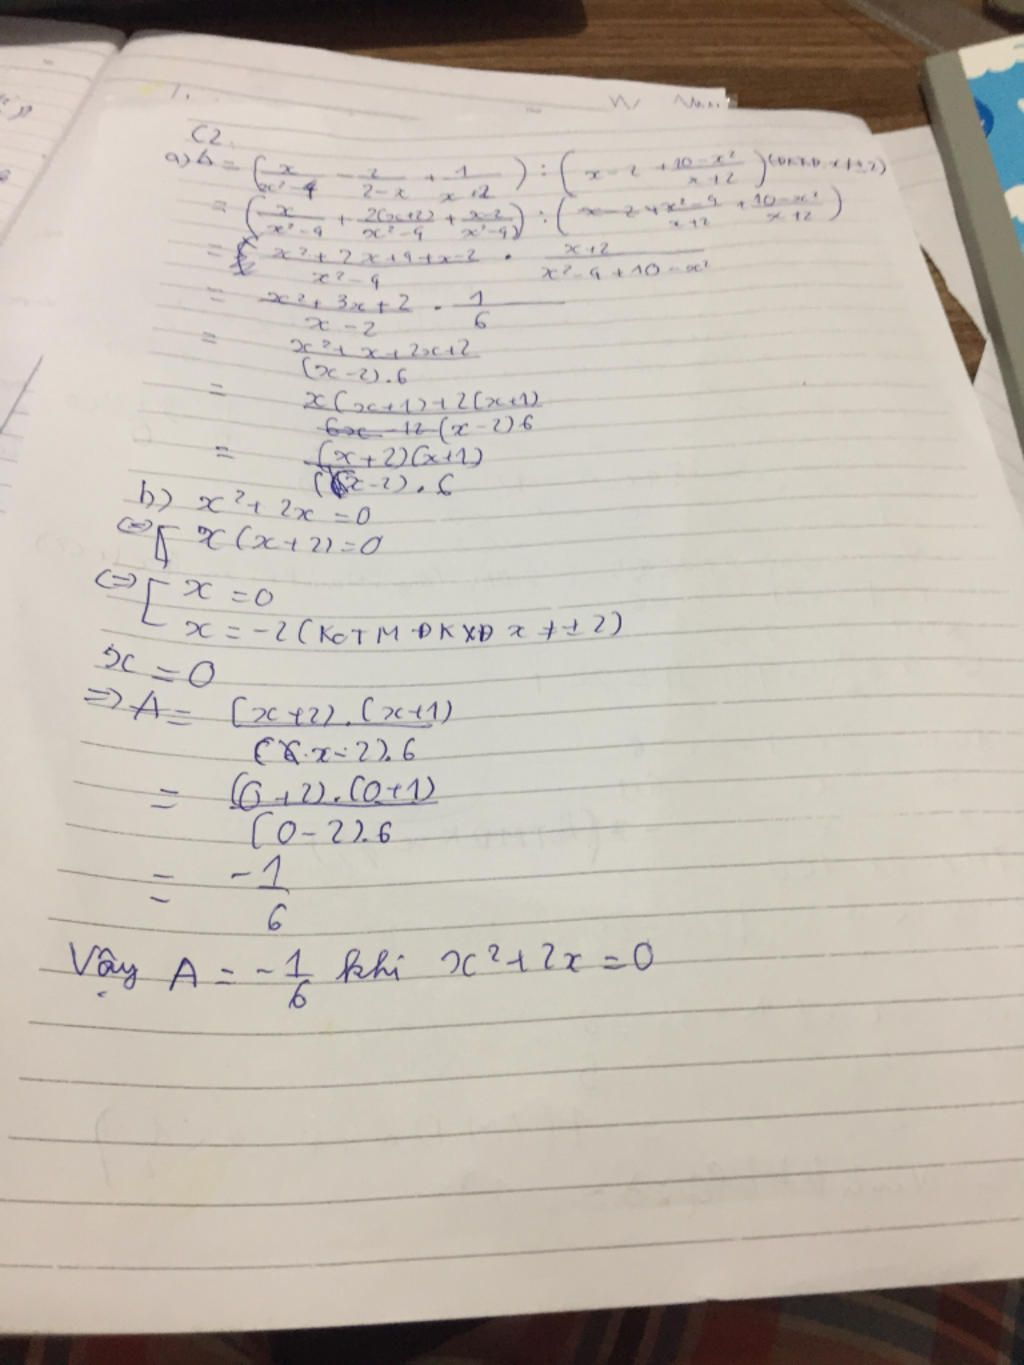 C2.
a) A = (x/(x²-4) - 2/(2-x) + 1/(x+2)) : (x-2 + (10-x²)/(x+2)) (ĐKXĐ x ≠ ±2)
= (x/(x²-4) + 2(x+2)/(x²-4) + (x-2)/(x²-4)) : ((x²-4)/(x+2) + (10-x²)/(x+2))
= (x²+2x+4+x-2)/(x²-4) · (x+2)/(x²-4+10-x²)
= (x²+3x+2)/(x-2) · 1/6
= (x²+x+2x+2)/((x-2).6)
= (x(x+1)+2(x+1))/((x-2)6)
= ((x+2)(x+1))/((x-2).6)
b) x²+2x=0
⇔ [ x(x+2)=0
⇔ [ x=0
x=-2 (KoTM ĐKXĐ x ≠ ±2)
x=0
=> A = ((x+2).(x+1))/((x-2).6)
= ((0+2).(0+1))/((0-2).6)
= -1/6
Vậy A = -1/6 khi x²+2x=0